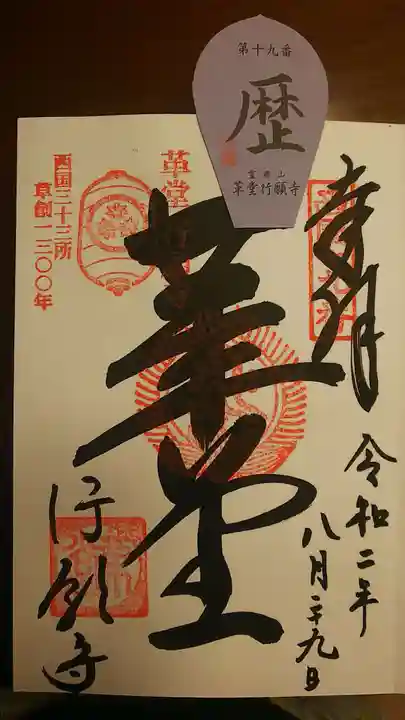 第十九番
歴
霊麀山
革堂行願寺
奉拝
令和二年
八月二十九日
革堂
西国三十三所
草創一三〇〇年
革堂
行願寺